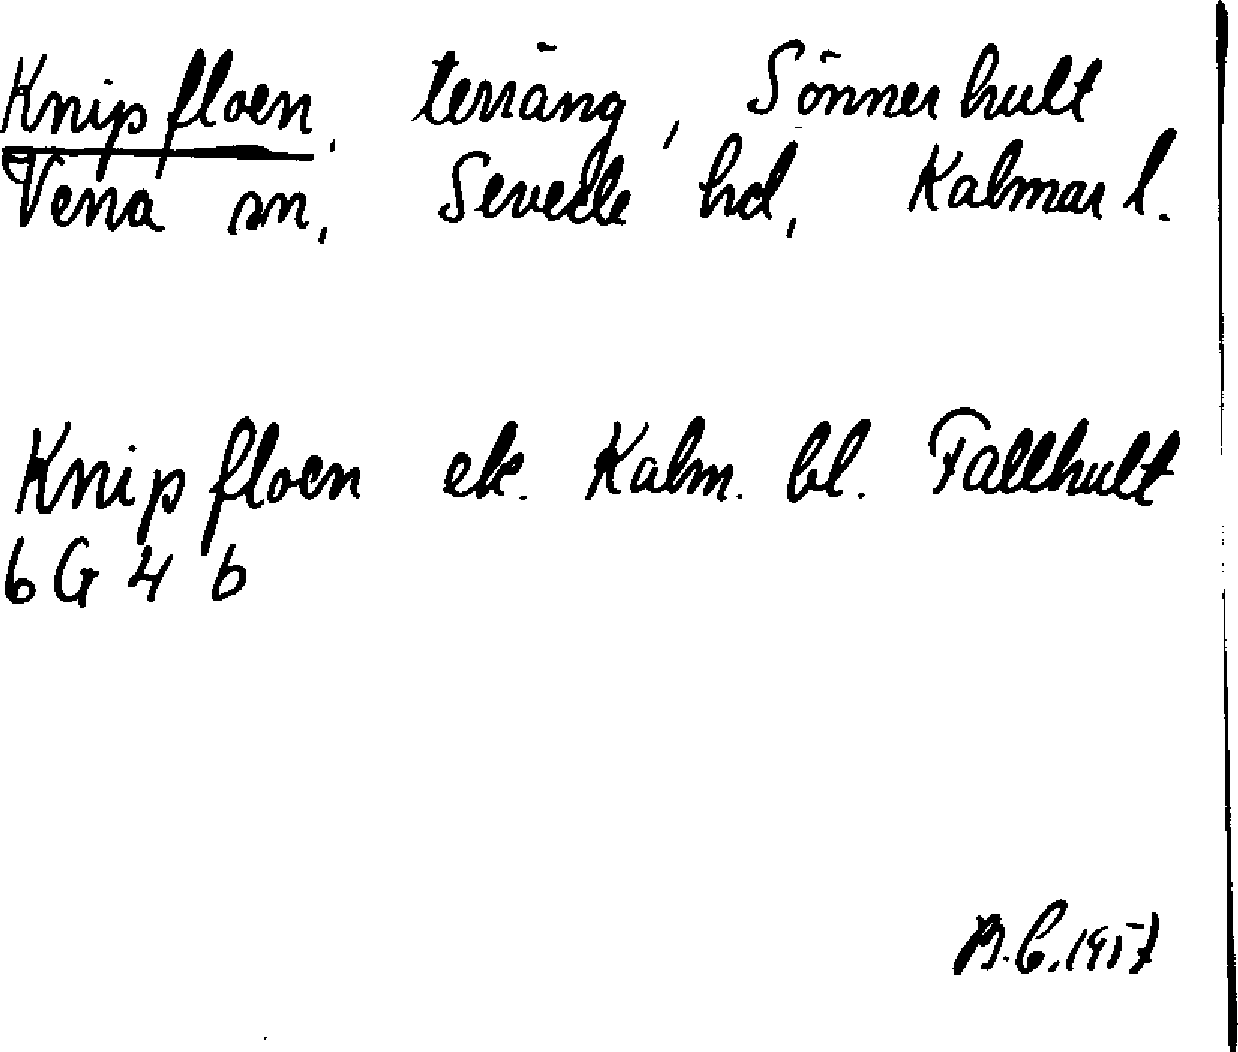 Knipfloen, terräng, Sönnerhult
Vena sn, Sevede hd, Kalmar l.
Knipfloen ek. Kalm. bl. Fallhult
6G 4 b
B.C. 1957